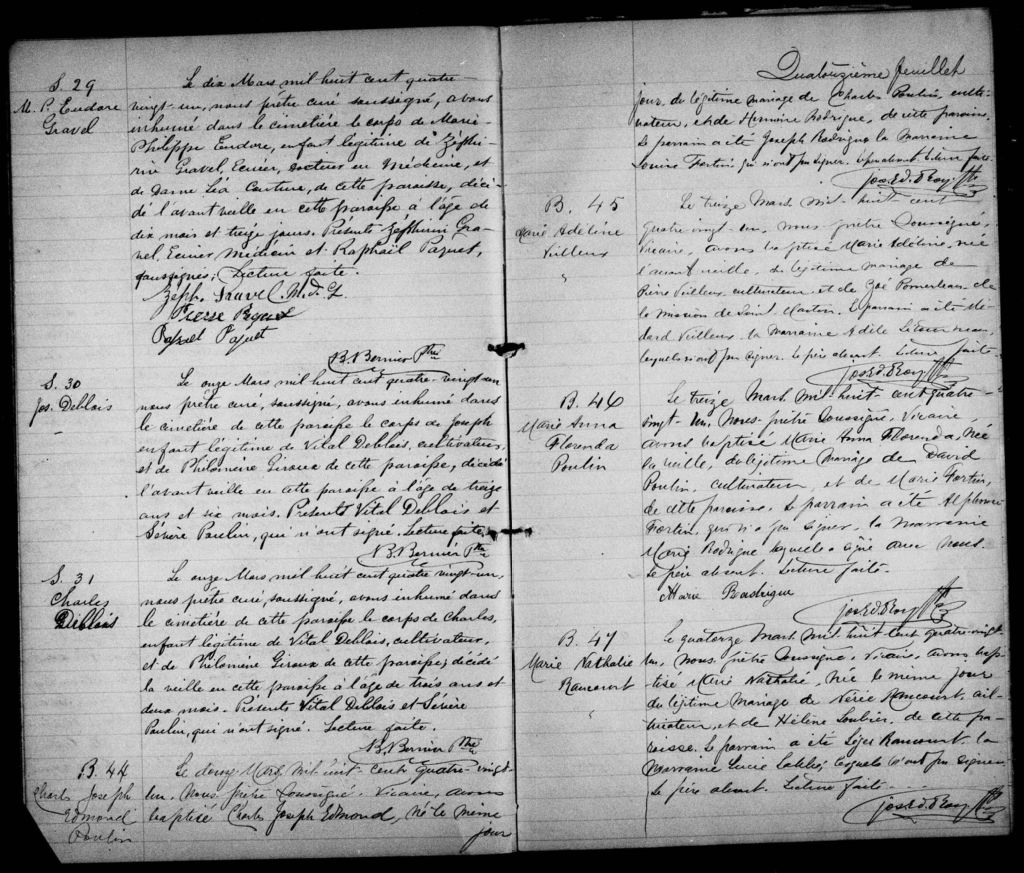 S. 29
M. P. Eudore
Gravel
Le dix Mars mil huit cent quatre-
vingt-un, nous prêtre curé soussigné, avons
inhumé dans le cimetière le corps de Marie
Philippe Eudore, enfant légitime de Zéphi-
rin Gravel, Ecuier, Docteur en Médecine, et
de Dame Léa Couture, de cette paroisse, décé-
dé l'avant veille en cette paroisse à l'âge de
dix mois et treize jours. Présents Zéphirin Gra-
vel, Ecuier Médecin et Raphaël Paquet,
soussignés; Lecture faite.
Zeph. Gravel. M.D.L.
Pierre Paquet
Paquet
B. Bernier Ptre
S. 30
Jos. Deblois
Le onze Mars mil huit cent quatre-vingt-un
nous prêtre curé, soussigné, avons inhumé dans
le cimetière de cette paroisse le corps de Joseph
enfant légitime de Vital Deblois, cultivateur,
et de Philomène Giroux de cette paroisse, décédé
l'avant veille en cette paroisse à l'âge de treize
ans et six mois. Présents Vital Deblois et
Sévère Poulin, qui n'ont signé. Lecture faite.
N. B. Bernier Ptre
S. 31
Charles
Deblois
Le onze Mars mil huit cent quatre vingt-un,
nous prêtre curé, soussigné, avons inhumé dans
le cimetière de cette paroisse le corps de Charles,
enfant légitime de Vital Deblois, cultivateur,
et de Philomène Giroux de cette paroisse; décédé
la veille en cette paroisse à l'âge de trois ans et
deux mois. Présents Vital Deblois et Sévère
Poulin, qui n'ont signé. Lecture faite.
B. Bernier Ptre
B. 44
Charles Joseph
Edmond
Poulin
Le douze Mars mil huit cent quatre-vingt-
un. Nous prêtre soussigné. Vicaire, avons
baptisé Charles Joseph Edmond, né le même
jour
Quatorzième feuillet
jour, du légitime mariage de Charles Poulin, culti-
vateur, et de Herminie Rodrigue, de cette paroisse.
Le parrain a été Joseph Rodrigue la marraine
Louise Fortin qui n'ont pu signer. Lecture faite.
Jos. Ed. Roy, Ptre
B. 45
Marie Adeline
Veilleux
Le treize Mars mil-huit cent
quatre-vingt-un, Nous prêtre Soussigné,
Vicaire, avons baptisé Marie Adéline, née
l'avant veille, du légitime mariage de
Pierre Veilleux, cultivateur et de Zoé Pomerleau de
la Mission de Saint Martin. Le parrain a été Mé-
dard Veilleux, la marraine Adèle Letourneau,
lesquels n'ont pu signer. Le père absent. Lecture faite.
Jos. Ed. Roy, Ptre
B. 46
Marie Anna
Florenda
Poulin
Le treize Mars mil huit cent quatre-
vingt-un. Nous, prêtre soussigné, Vicaire
avons baptisé Marie Anna Florenda, née
la veille, du légitime mariage de David
Poulin, cultivateur, et de Marie Fortin,
de cette paroisse. Le parrain a été Alphonse
Fortin, qui n'a pu signer, la marraine
Marie Rodrigue laquelle a signé avec nous.
Le père absent. Lecture faite.
Marie Rodrigue
Jos. Ed. Roy, Ptre
B. 47
Marie Nathalie
Rancourt
Le quatorze Mars mil huit cent quatre-vingt
un. Nous, prêtre soussigné, Vicaire, avons bap-
tisé Marie Nathalie, née le même jour
du légitime mariage de Rancourt, cul-
tivateur, et de Hélène Loubier, de cette pa-
roisse. Le parrain a été Léger Rancourt, la
marraine Lucie lesquels n'ont pu signer.
Le père absent. Lecture faite.
Jos. Ed. Roy, Ptre